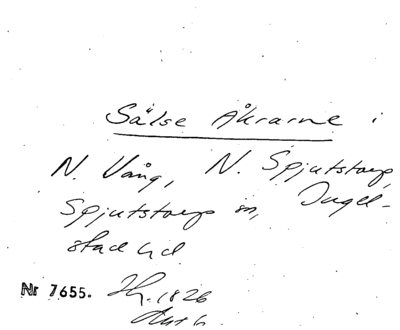 Sälse Åkrarne i
N. Vång, N. Spjutstorp,
Spjutstorp sn, Ingel-
stad hd
Nr 7655. Hy. 1826